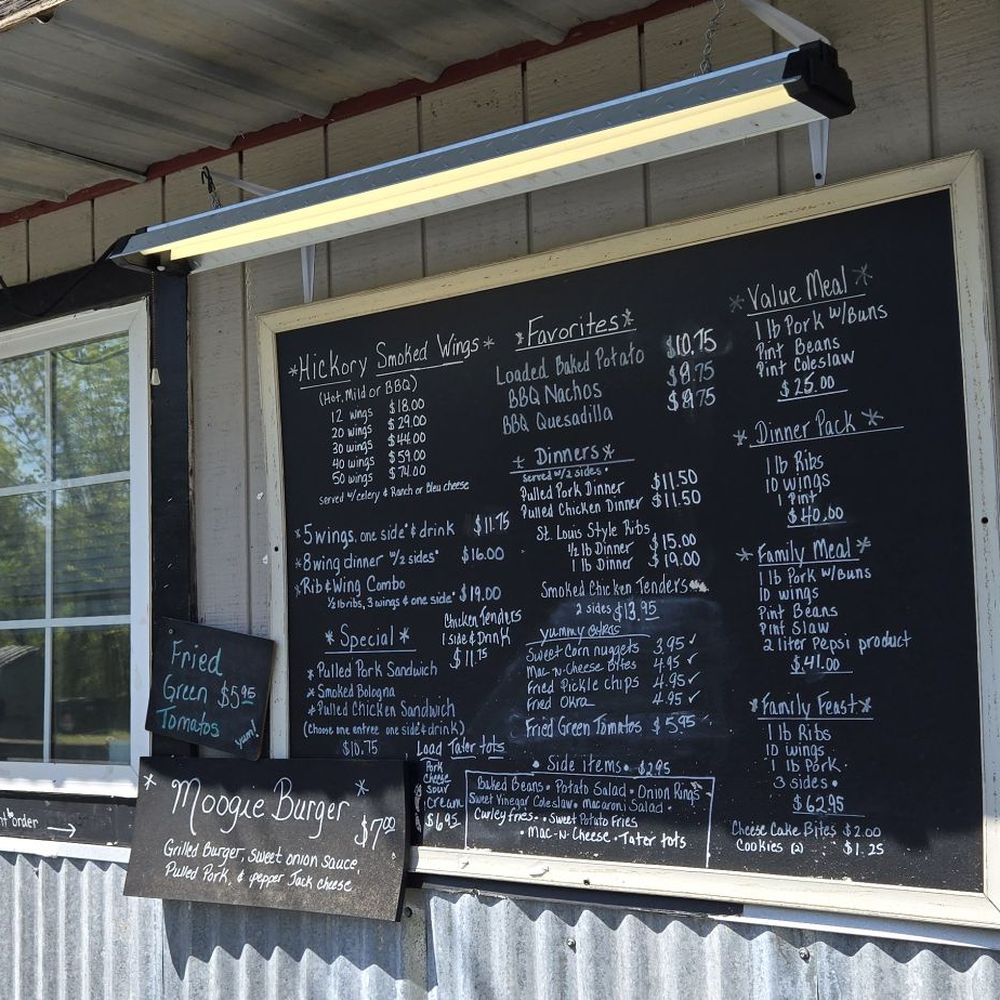 *Hickory Smoked Wings*
(Hot, Mild or BBQ)
12 wings $18.00
20 wings $29.00
30 wings $44.00
40 wings $59.00
50 wings $74.00
Served w/celery & Ranch or Bleu cheese
*5 wings, one side* & drink $11.75
*8 wing dinner w/2 sides* $16.00
*Rib & Wing Combo
½ lb ribs, 3 wings & one side* $19.00
*Special*
*Pulled Pork Sandwich
*Smoked Bologna
*Pulled Chicken Sandwich
(Choose one entree one side & drink)
$10.75
Chicken Tenders
1 side & Drink
$11.75
Load Tater tots
Pork
Cheese
Sour
Cream
$6.95
*Favorites*
Loaded Baked Potato $10.75
BBQ Nachos $9.75
BBQ Quesadilla $9.75
*Dinners*
Served w/2 sides•
Pulled Pork Dinner $11.50
Pulled Chicken Dinner $11.50
St. Louis Style Ribs
½ lb Dinner $15.00
1 lb Dinner $19.00
Smoked Chicken Tenders
2 sides $13.95
yummy extras
Sweet Corn nuggets 3.95 ✓
Mac-n-Cheese Bites 4.95 ✓
Fried Pickle Chips 4.95 ✓
Fried Okra 4.95 ✓
Fried Green Tomatos $5.95
• Side items • $2.95
Baked Beans • Potato Salad • Onion Rings
Sweet Vinegar Coleslaw • macaroni Salad •
Curley fries • • Sweet Potato Fries
• Mac-N-Cheese • Tater tots
*Value Meal*
1 lb Pork w/Buns
Pint Beans
Pint Coleslaw
$25.00
*Dinner Pack*
1 lb Ribs
10 wings
1 Pint
$40.00
*Family Meal*
1 lb Pork w/Buns
10 wings
Pint Beans
Pint Slaw
2 liter Pepsi product
$41.00
*Family Feast*
1 lb Ribs
10 wings
1 lb Pork
3 sides •
$62.95
Cheese Cake Bites $2.00
Cookies (2) $1.25
Fried
Green $5.95
Tomatos
yum!
*Moogie Burger*
$7.00
Grilled Burger, sweet onion sauce,
Pulled Pork, & pepper Jack cheese
order →